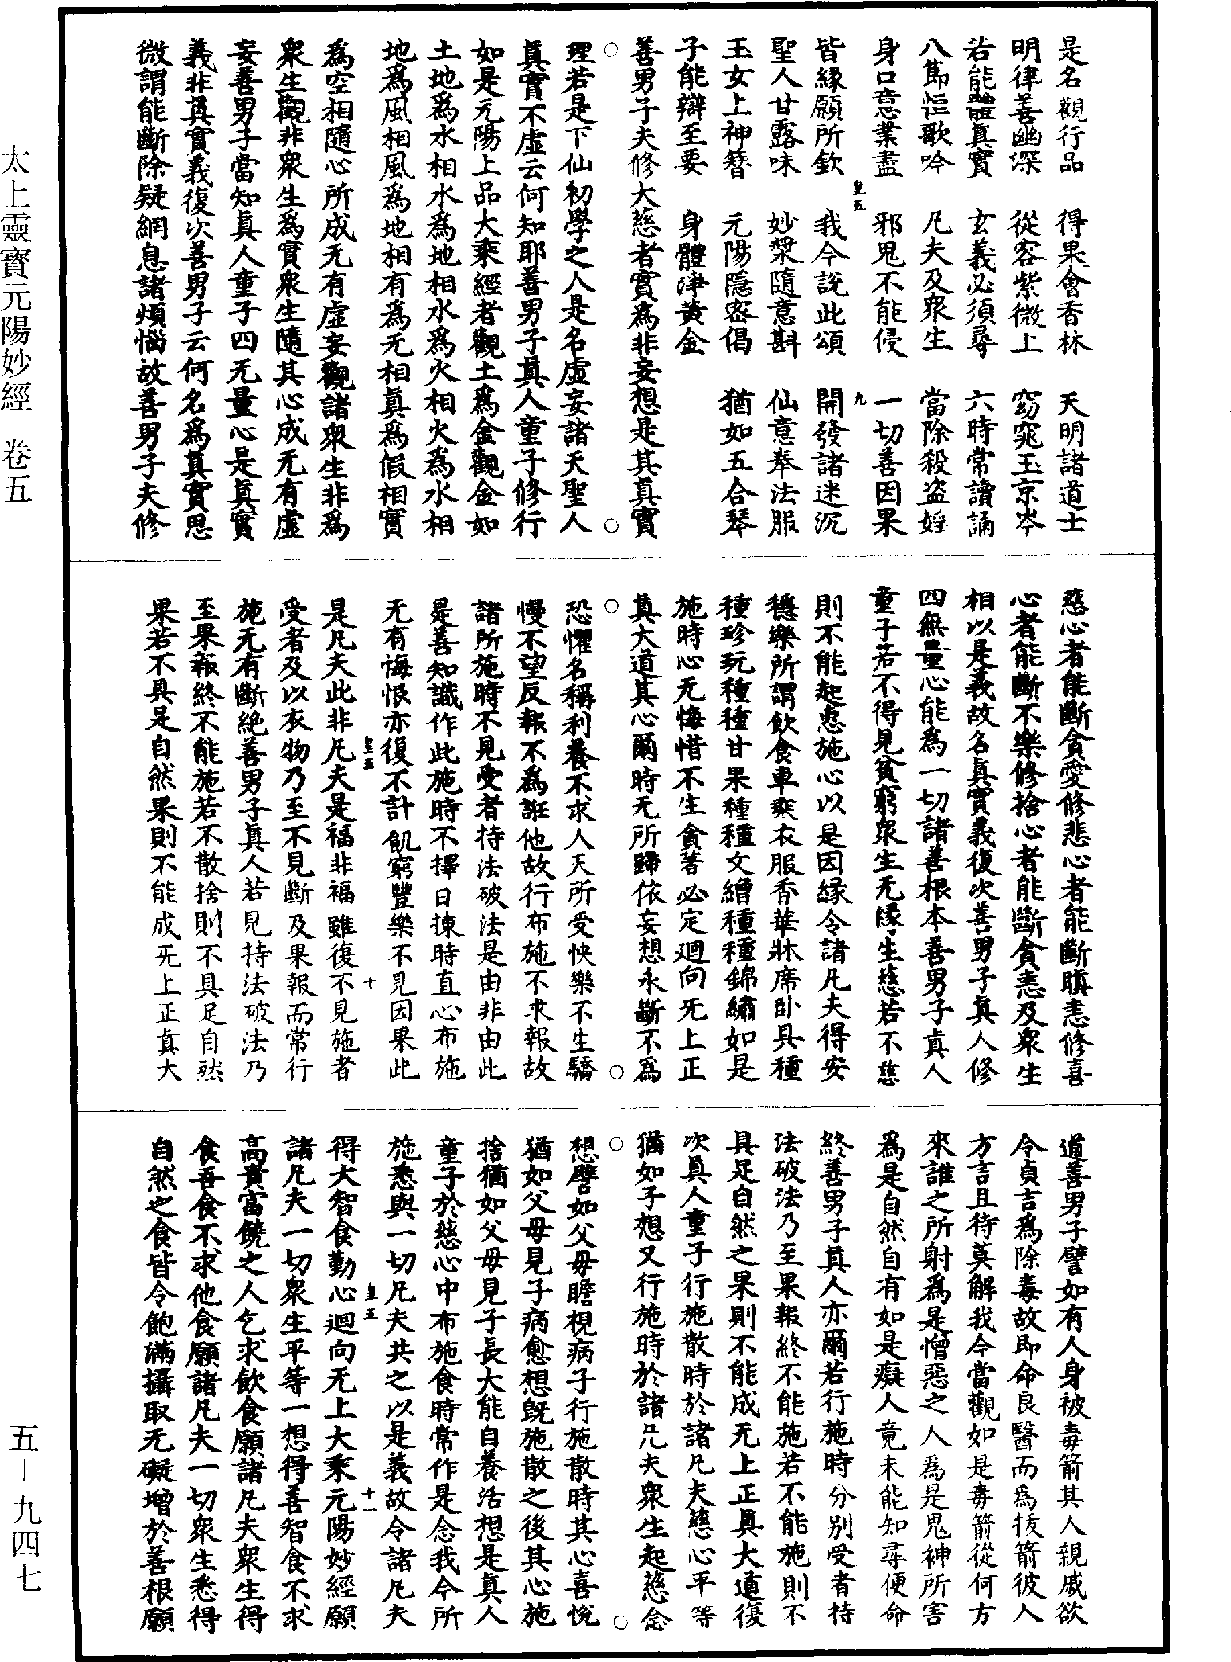 是名觀行品　得果會香林　天明諸道士
明律善幽深　從容紫微上　窈窕玉京岑
若能體真實　玄義必須尋　六時常讀誦
八節恒歌吟　凡夫及衆生　當除殺盗婬
身口意業盡　邪鬼不能侵　一切善因果
皇五　九
皆緣願所欽　我今說此頌　開發諸迷沉
聖人甘露味　妙漿隨意斟　仙意奉法服
玉女上神簪　元陽隱密倡　猶如五合琴
子能辯至要　身體淨黄金
善男子夫修大慈者實為非妄想是其真實
理若是下仙初學之人是名虛妄諸天聖人
真實不虛云何知耶善男子真人童子修行
如是元陽上品大乘經者觀土為金觀金如
土地為水相水為地相水為火相火為水相
地為風相風為地相有為无相真為假相實
為空相隨心所成无有虛妄觀諸衆生非為
衆生觀非衆生為實衆生隨其心成无有虛
妄善男子當知真人童子四无量心是真實
義非真實義復次善男子云何名為真實思
微謂能斷除疑網息諸煩惱故善男子夫修
慈心者能斷貪愛修悲心者能斷瞋恚修喜
心者能斷不樂修捨心者能斷貪恚及衆生
相以是義故名真實義復次善男子真人修
四無量心能為一切諸善根本善男子真人
童子若不得見貧窮衆生无緣生慈若不慈
則不能起惠施心以是因緣令諸凡夫得安
穩樂所謂飲食車乘衣服香華牀席卧具種
種珍玩種種甘果種種文繒種種錦繡如是
施時心无悔惜不生貪著必定迴向无上正
真大道其心爾時无所歸依妄想永斷不為
恐懼名稱利養不求人天所受快樂不生驕
慢不望反報不為誑他故行布施不求報故
諸所施時不見受者持法破法是由非由此
是善知識作此施時不擇日揀時直心布施
无有悔恨亦復不計飢窮豐樂不見因果此
皇五　十
是凡夫此非凡夫是福非福雖復不見施者
受者及以衣物乃至不見斷及果報而常行
施无有斷絕善男子真人若見持法破法乃
至果報終不能施若不散捨則不具足自然
果若不具是自然果則不能成无上正真大
道善男子譬如有人身被毒箭其人親戚欲
令貞吉為除毒故即命良醫而為拔箭彼人
方言且待莫解我今當觀如是毒箭從何方
來誰之所射為是憎惡之人為是鬼神所害
為是自然自有如是癡人竟未能知尋便命
終善男子真人亦爾若行施時分別受者持
法破法乃至果報終不能施若不能施則不
具足自然之果則不能成无上正真大道復
次真人童子行施散時於諸凡夫慈心平等
猶如子想又行施時於諸凡夫衆生起慈念
想譬如父母瞻視病子行施散時其心喜悅
猶如父母見子病愈想既施散之後其心施
捨猶如父母見子長大能自養活想是真人
童子於慈心中布施食時常作是念我今所
施悉與一切凡夫共之以是義故令諸凡夫
皇五　十一
得大智食勤心迴向无上大乘元陽妙經願
諸凡夫一切衆生平等一想得善智食不求
高貴富饒之人乞求飲食願諸凡夫衆生得
食吾食不求他食願諸凡夫一切衆生悉得
自然之食皆令飽滿攝取无礙增於善根願
太上靈寶元陽妙經　卷五
五－九四七